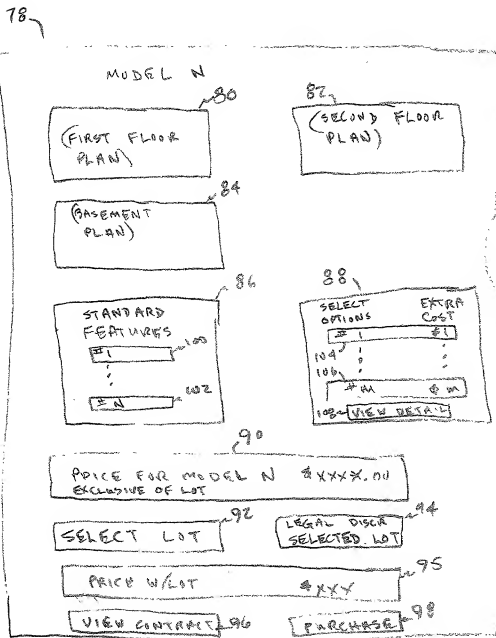 78
MODEL N
80
82
(FIRST FLOOR
PLAN)
(SECOND FLOOR
PLAN)
84
(BASEMENT
PLAN)
86
88
STANDARD
FEATURES
SELECT
OPTIONS
EXTRA
COST
# 1
100
# 1 $1
104
106
# N
102
# M $ M
108
VIEW DETAIL
90
PRICE FOR MODEL N $XXXX.00
EXCLUSIVE OF LOT
92
94
SELECT LOT
LEGAL DISCR
SELECTED LOT
95
PRICE W/LOT $XXX
VIEW CONTRACT
96
PURCHASE
98